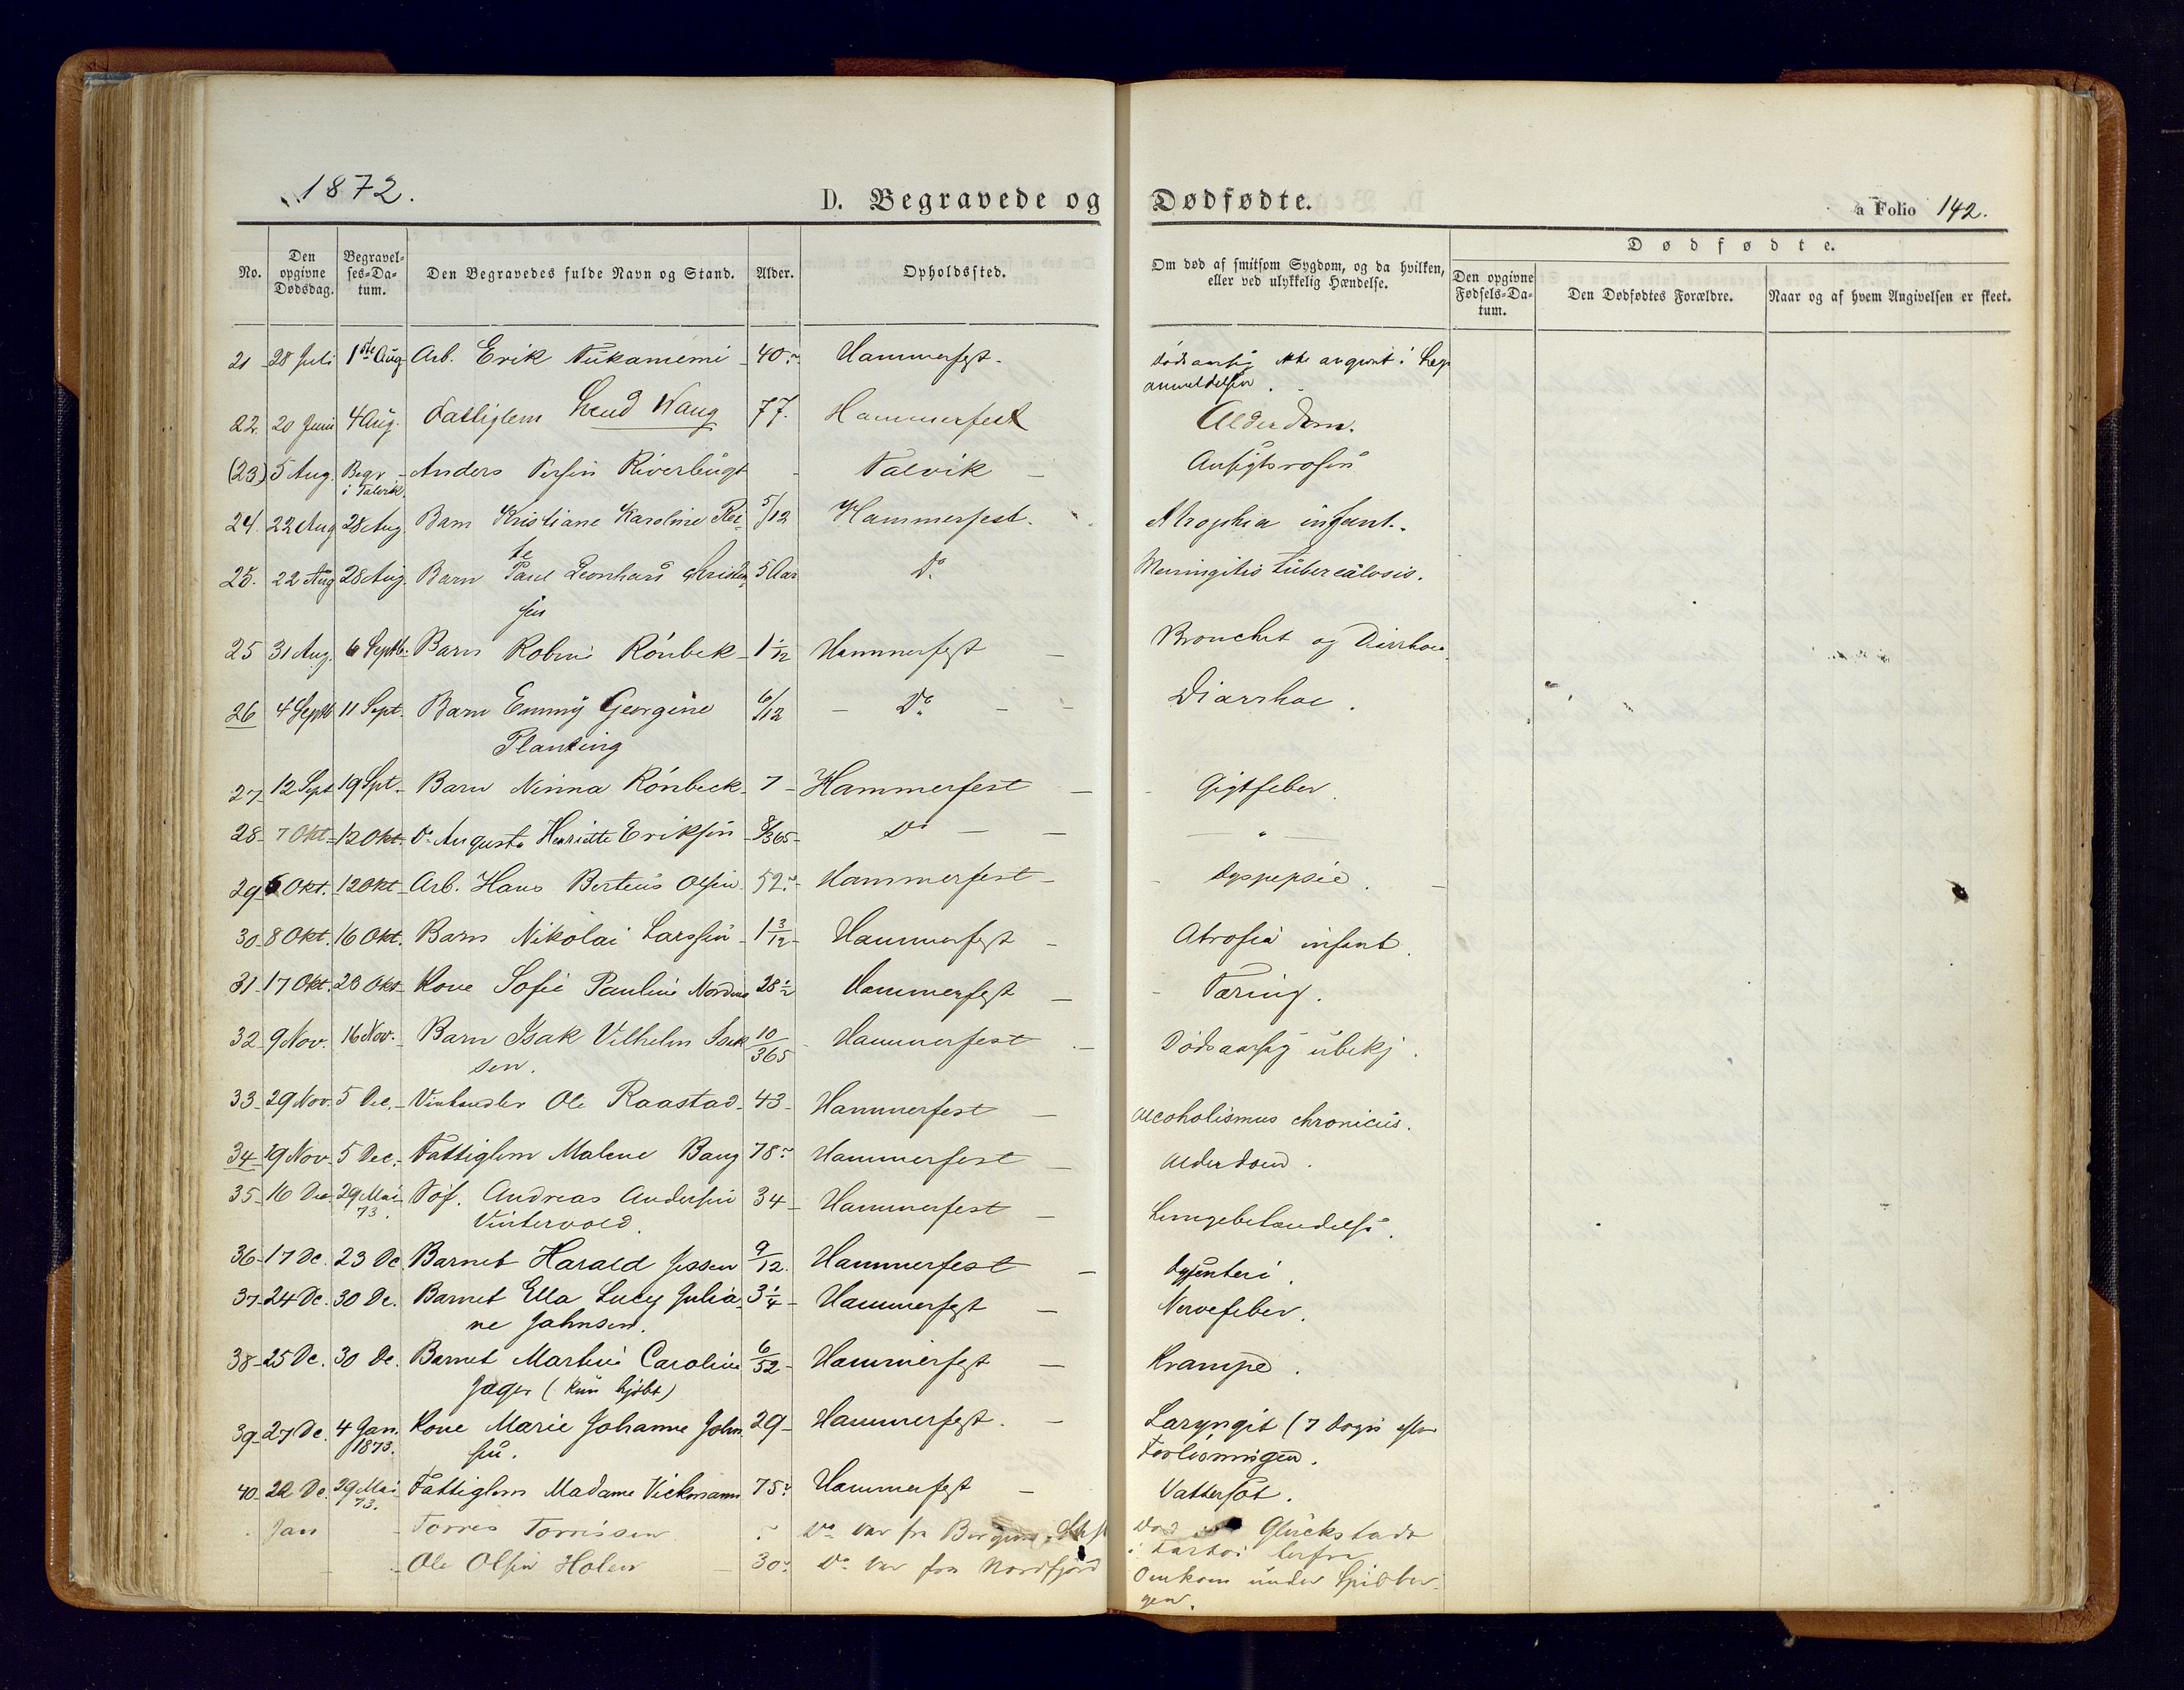 1872.
D. Begravede og Dødfødte.
a Folio 142.
No.
Den opgivne Dødsdag.
Begravelses-Datum.
Den Begravedes fulde Navn og Stand.
Alder.
Opholdssted.
Om død af smitsom Sygdom, og da hvilken, eller ved ulykkelig Hændelse.
Dødfødte.
Den opgivne Fødsels-Datum.
Den Dødfødtes Forældre.
Naar og af hvem Angivelsen er skeet.
21 28 Juli 1ste Aug Arb. Erik 40 Hammerfest. Dødsaarsag ikke angivet i
anmeldelsen.
22. 20 Juni 4 Aug. Fattiglem Wang 77. Hammerfest Alderdom.
(23) 5 Aug. Begr. Anders Persen Riverbugt Talvik Ansigtsrosen
i Talvik.
24. 22 Aug 28 Aug Barn Kristiane Karoline Rei- 5/12 Hammerfest. Atrophia infant.
te
25. 22 Aug 28 Aug. Barn Paul Leonhard Kristen- 5 Aar Do Meningitis tuberculosis.
sen
25 31 Aug. 6 Septb. Barn Rönbek 1 1/12 Hammerfest Bronchit og
26 4 Septb 11 Sept. Barn Emmy Georgine 6/12 Do Diarrhoe.
Planting
27 12 Sept 19 Spt. Barn Ninna Rönbeck 7 Hammerfest Gigtfeber.
28 7 Okt. 12 Okt. Do Augusta Henriette Eriksen 8/365 Do "
29 6 Okt. 12 Okt Arb. Hans Berteus Olsen 52 Hammerfest Dyspepsie.
30 8 Okt. 16 Okt. Barn Nikolai Larssen 1 3/12 Hammerfest Atrofia infant.
31 17 Okt. 23 Okt Kone Sofie Pauline 28 1/2 Hammerfest Tæring.
32 9 Nov. 16 Nov. Barn Isak Vilhelm Isak 10/365 Hammerfest Dødsaarsag ubekj.
sen.
33 29 Nov. 5 Dec. Vinhandler Ole Raastad 43 Hammerfest Alcoholismus chronicus.
34 19 Nov. 5 Dec. Fattiglem Malene Bang 78 Hammerfest Alderdom.
35 16 Dec 29 Mai Töf. Andreas Andersen 34 Hammerfest Lungebetændelse.
73.
Vintervold.
36 17 De. 23 De Barnet Harald Jessen 9/12. Hammerfest Dysenteri.
37 24 De. 30 De. Barnet Ella Lucy Julia- 3 1/4 Hammerfest Nervefeber.
ne Jahnsen.
38 25 De. 30 De. Barnet Martine Caroline 6/52 Hammerfest Krampe.
Jager (kun hjdbt)
39 27 De. 4 Jan. Kone Marie Johanne John- 29 Hammerfest. Laryngit (7 Døgn efter
1873.
sen. Forløsningen.
40 22 De. 29 Mai Fattiglem Madame Vickmann 75 Hammerfest Vattersot.
73.
Jan Torres Torrissen Do var fra Bergens Glückstadt
i
Ole Olsen Holen 30 Do var fra Nordfjord Omkom under Spidsber-
gen.